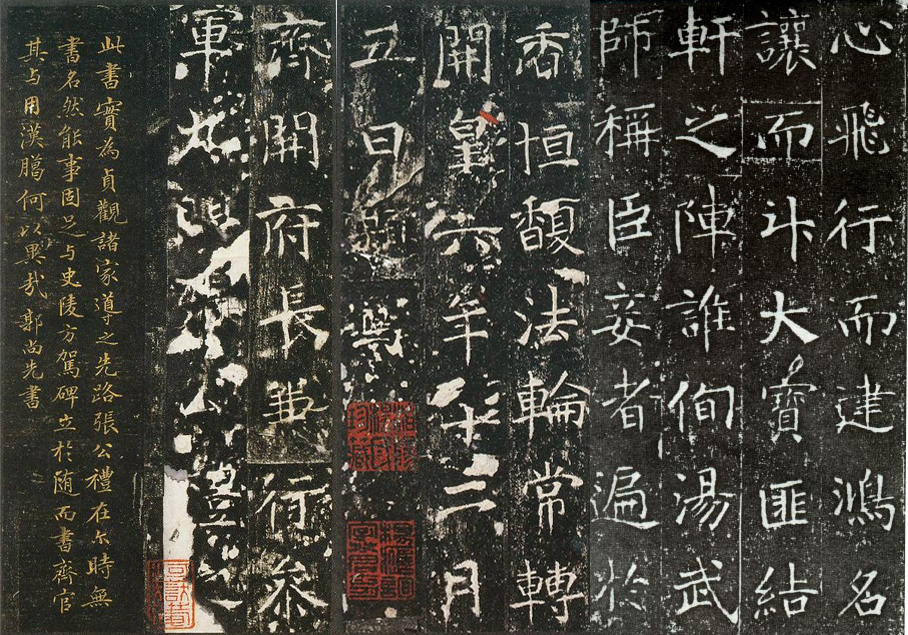 心飛行而建鴻名
讓而斗大寶匪結
軒之陣誰侚湯武
師稱臣妾者遍於
香恒馥法輪常轉
開皇六年十二月
五日題
齊開府長兼行參
軍九門張公禮之
此書實為貞觀諸家導之先路張公禮在尒時無
書名然能事固足与史陵方駕碑立於隨而書齊官
其与用漢臘何以異哉郭尚先書